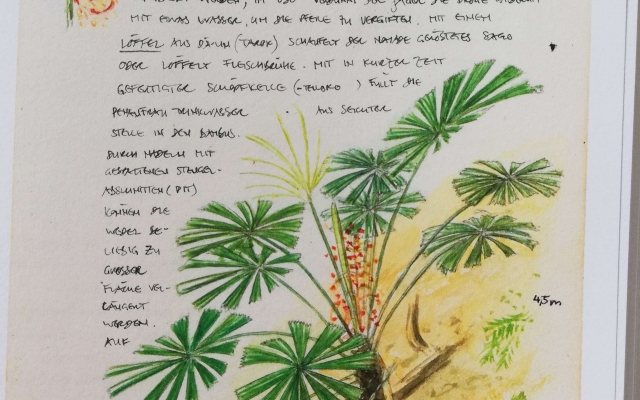 MIT ETWAS WASSER, UM DIE PFEILE ZU VERGIFTEN. MIT EINEM
LÖFFEL AUS DAUN (TAROK) SCHAUFELT DER NOMADE GERÖSTETES SAGO
ODER LÖFFELT FLEISCHBRÜHE. MIT IN KURZER ZEIT
GEFERTIGTER SCHÖPFKELLE (-TELOKO ) FÜLLT DIE
PENANFRAU TRINKWASSER AUS SEICHTER
STELLE IN DEN BAMBUS.
DURCH NADELN MIT
GESPALTENEN STENGEL-
ABSCHNITTEN (PIT)
KÖNNEN DIE
WEDEL BE-
LIEBIG ZU
GROSSER
FLÄCHE VER-
LÄNGERT
WERDEN.
AUF
4,5 m